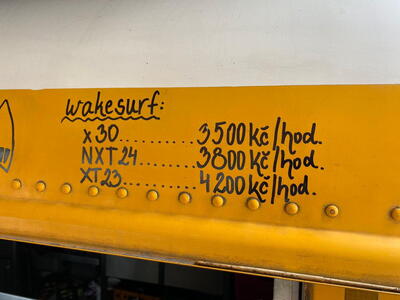 wakesurf:
x30.......... 3500kč/hod.
NXT24......... 3800kč/hod.
XT23.......... 4200kč/hod.